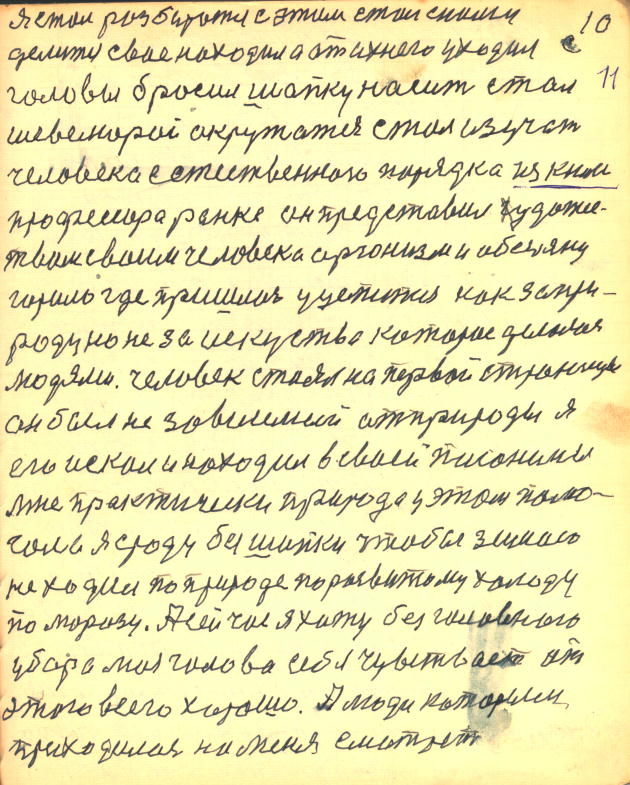 я стал розбиратся с этим стал с ними 10
делится свое находил а от их него уходил с
головы бросил шапку насит стал 11
шевелюрой окружатся стал изучат
человека естественного порядка из книги
профессора ранке он представил художе-
твом своим человека организм и обезяну
горило где пришлос уцепится как за при-
роду но не за искуства которое делалос
людями. Человек стоял на первой странице
он был не зовисимый от природы я
его искал и находил в своей писанины
мне практически природа у этом помо-
гала я сроду без шапки чтобы зимаю
не ходил по природе по розвитому холоду
по морозу. А сейчас я хожу без головного
убара моя голова себя чувствает от
этого всего хорошо. А люди которым
приходилос на меня смотрет